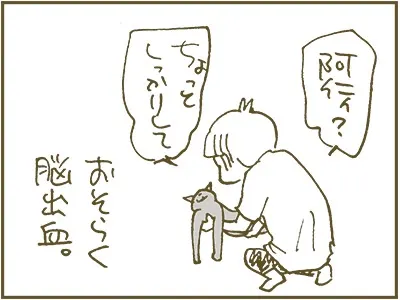 阿行？
ちょっと
しっかりして
おそらく
脳出血。